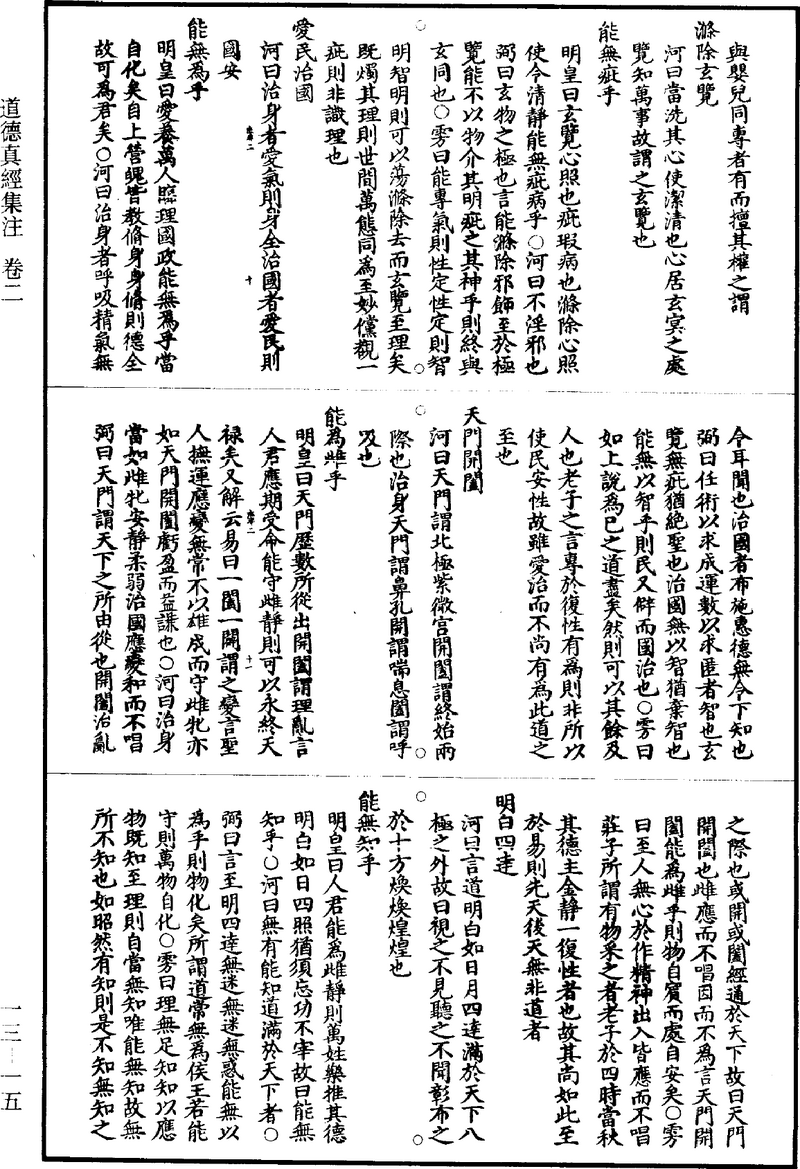 與嬰兒同專者有而擅其權之謂
滌除玄覽
河曰當洗其心使潔清也心居玄冥之處
覽知萬事故謂之玄覽也
能無疵乎
明皇曰玄覽心照也疵瑕病也滌除心照
使令清靜能無疵病乎○河曰不淫邪也
弼曰玄物之極也言能滌除邪飾至於極
覽能不以物介其明疵之其神乎則終與
玄同也○雱曰能專氣則性定性定則智
明智明則可以蕩滌除去而玄覽至理矣
既燭其理則世間萬態同為至妙儻觀一
疵則非識理也
愛民治國
河曰治身者愛氣則身全治國者愛民則
國安
能無為乎
明皇曰愛養萬人臨理國政能無為乎當
自化矣自上營魄皆教脩身身脩則德全
故可為君矣○河曰治身者呼吸精氣無
令耳聞也治國者布施惠德無令下知也
弼曰任術以求成運數以求匿者智也玄
覽無疵猶絶聖也治國無以智猶棄智也
能無以智乎則民又僻而國治也○雱曰
如上說為已之道盡矣然則可以其餘及
人也老子之言專於復性有為則非所以
使民安性故雖愛治而不尚有為此道之
至也
天門開闔
河曰天門謂北極紫微宮開闔謂終始兩
際也治身天門謂鼻孔開謂喘息闔謂呼
吸也
能為雌乎
明皇曰天門歷數所從出開闔謂理亂言
人君應期受命能守雌靜則可以永終天
禄矣又解云易曰一闔一開謂之變言聖
人撫運應變無常不以雄成而守雌牝亦
如天門開闔虧盈而益謙也○河曰治身
當如雌牝安靜柔弱治國應變和而不唱
弼曰天門謂天下之所由從也開闔治亂
之際也或開或闔經通於天下故曰天門
開闔也雌應而不唱因而不為言天門開
闔能為雌乎則物自賓而處自安矣○雱
曰至人無心於作精神出入皆應而不唱
莊子所謂有物采之者老子於四時當秋
其德主金静一復性者也故其尚如此至
於易則先天後天無非道者
明白四達
河曰言道明白如日月四達滿於天下八
極之外故曰視之不見聽之不聞彰布之
於十方煥煥煌煌也
能無知乎
明皇曰人君能為雌靜則萬姓樂推其德
明白如日四照猶須忘功不宰故曰能無
知乎○河曰無有能知道滿於天下者○
弼曰言至明四達無迷無惑能無以
為乎則物化矣所謂道常無為侯王若能
守則萬物自化○雱曰理無足知知以應
物既知至理則自當無知唯能無知故無
所不知也如昭然有知則是不知無知之
道德真經集注 卷二
一三—一五